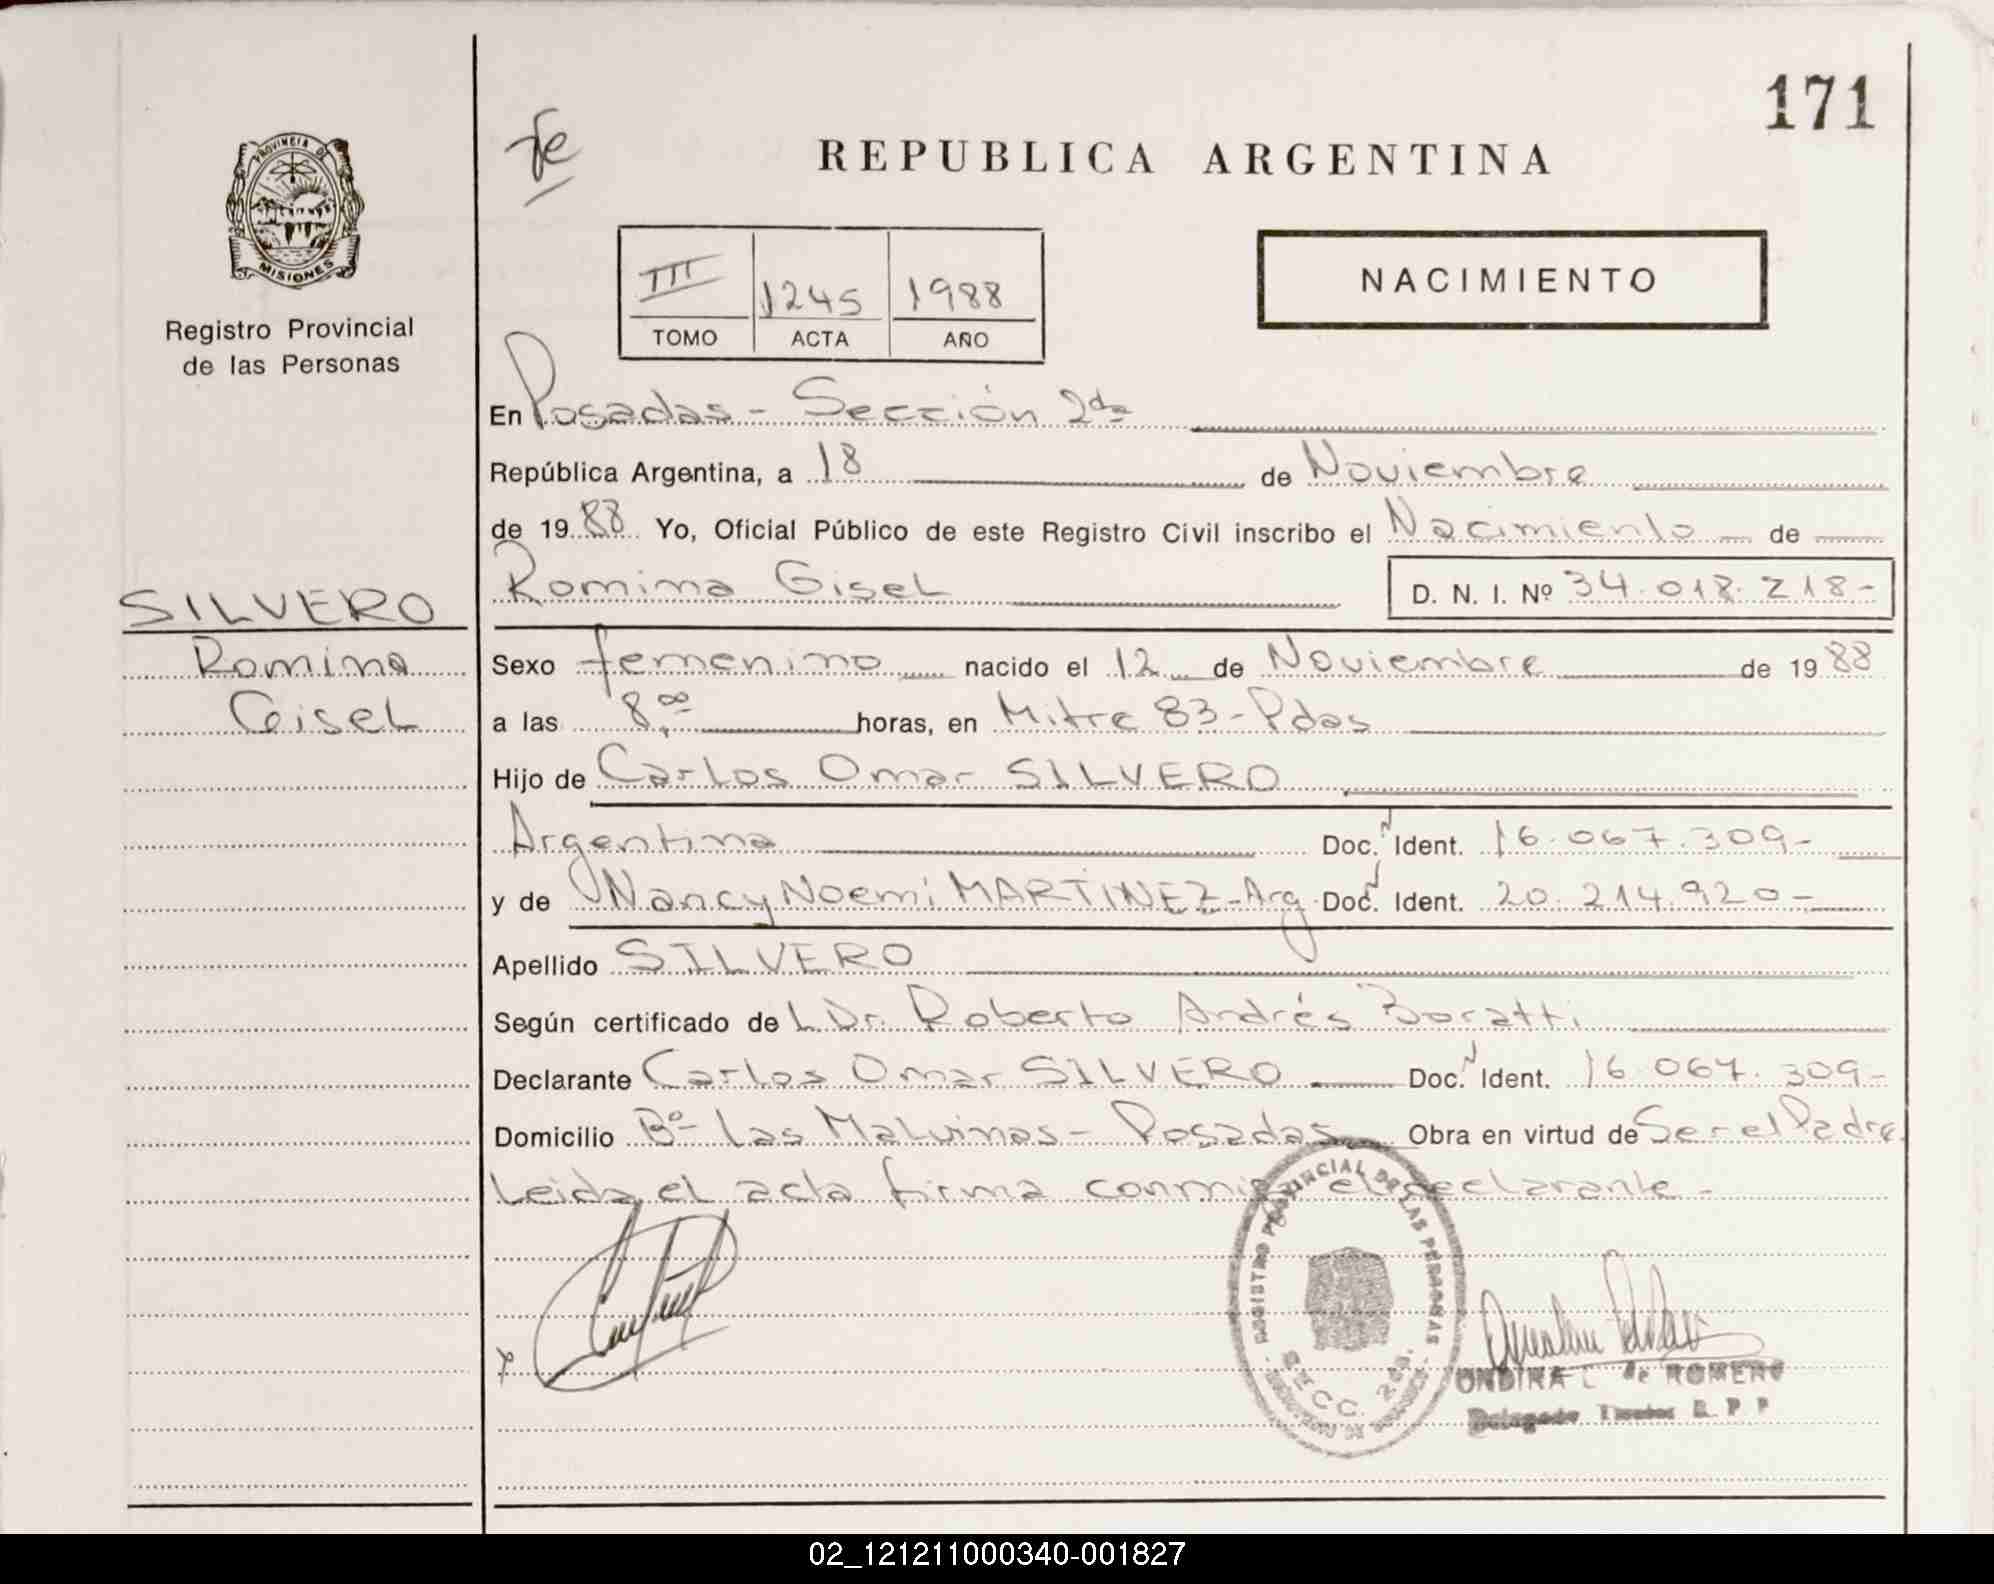 171
fe
REPUBLICA ARGENTINA
PROVINCIA DE
MISIONES
Registro Provincial
de las Personas
III 1245 1988
TOMO ACTA AÑO
NACIMIENTO
En Posadas - Sección 2da
República Argentina, a 18 de Noviembre
de 1988 Yo, Oficial Público de este Registro Civil inscribo el Nacimiento de
Romina Gisel D. N. I. Nº 34.018.218-
SILVERO
Romina
Gisel
Sexo femenino nacido el 12 de Noviembre de 1988
a las 8,00 horas, en Mitre 83 - Pdas
Hijo de Carlos Omar SILVERO
Argentina Doc. Ident. 16.067.309-
y de Nancy Noemi MARTINEZ - Arg Doc. Ident. 20.214.920-
Apellido SILVERO
Según certificado de L Dr. Roberto Andrés Boratti
Declarante Carlos Omar SILVERO Doc. Ident. 16.067.309-
Domicilio Bº Las Malvinas - Posadas Obra en virtud de Ser el Padre
Leida el acta firma conmigo el declarante -
REGISTRO PROVINCIAL DE LAS PERSONAS
SECC. 2da.
ONDINA L de ROMERO
Delegado Titular R. P. P
02_121211000340-001827